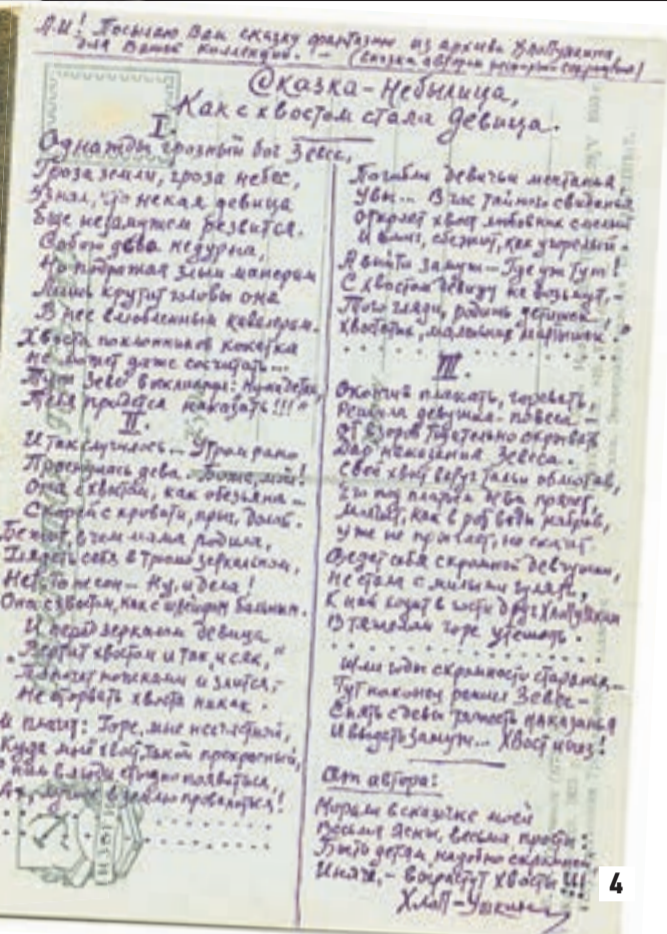 А.И! Посылаю Вам сказку фантазию из архива Хлопушкина
для Вашей коллекции. – (сказка автором
Сказка-Небылица,
Как с хвостом стала девица.
I.
Однажды грозный бог Зевес,
Гроза земли, гроза небес,
Узнал, что некая девица
Еще незамужем резвится.
Собою дева недурна,
Но подражая злым манерам
Лишь крутит головы она
В нее влюбленным кавалерам.
Хвоста поклонников кокетка
Не может даже сосчитать...
Тут Зевес воскликнул:
Тебя придется наказать!!!"
II.
И так случилось... Утром рано
Проснулась дева. Боже, мой!
Она с хвостом, как обезьяна –
Скорей с кровати, прыг, долой.
Бежит, в чем мама родила,
Глядеть себя в трюмо зеркальном,
Нет, то не сон – Ну, и дела!
Она с хвостом, как с шлейфом бальным.
И перед зеркалом девица
Вертит хвостом и так, и сяк,
Топочет ножками и злится, –
Не оторвать хвоста никак.
И плачет: Горе, мне несчастной,
Куда мой хвост такой прекрасный,
С ним в люди стыдно появиться,
Ах, лучше в землю провалиться!
Погибли девичьи мечтанья
Увы... В час тайного свиданья
Откроет хвост любовник смелый
И вмиг, сбежит, как угорелый.
А выйти замуж – Где уж тут!
С хвостом девицу не возьмут, –
Того гляди, родишь детишек –
Хвостатых, маленьких мартышек."
III.
Окончив плакать, горевать,
Решила девушка-повеса –
От взоров тщательно скрывать
Дар наказания Зевеса.
Свой хвост вокруг тальи обмотав,
Его под платьем дева прячет,
Молчит, как в рот воды набрав,
Уже не прыгает, не скачет.
Ведет себя скромной девчушки,
Не стала с милыми гулять,
К ней ходит в гости друг Хлопушкин
В тяжелом горе утешать.
Шли годы скромности старанья, –
Тут наконец решил Зевес –
Снять с девы тяжесть наказанья
И выдать замуж... Хвост исчез!
От автора:
Мораль в сказочке моей
Весьма ясны, весьма просты:
Быть детям надобно скромней
Иначе, – вырастут хвосты!!!
Хлоп-Ушкин
4